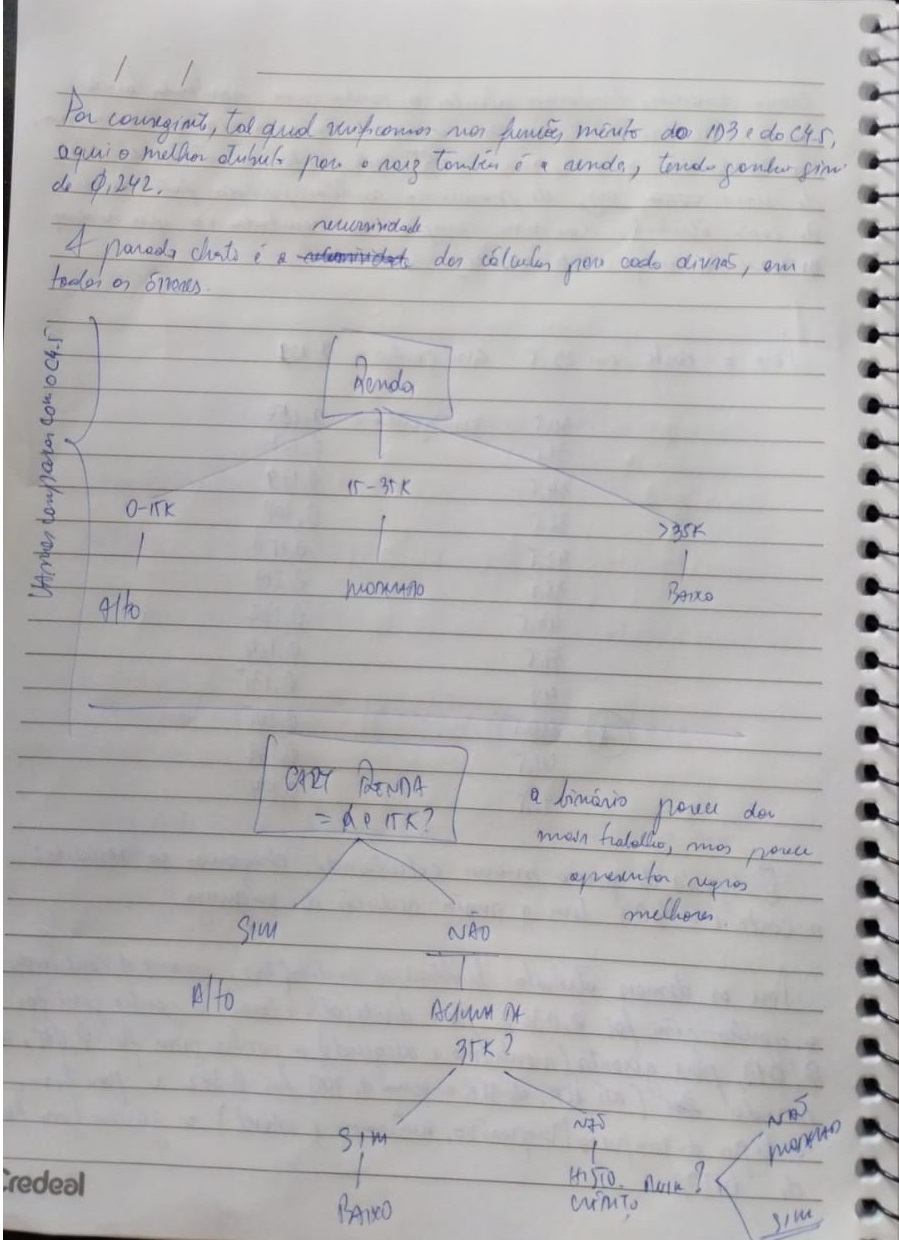 / /
Por conseguinte, tal qual verificamos nas funções mérito do ID3 e do C4.5,
aqui o melhor atributo para a raiz também é a renda, tendo ganho gini
de 0,242.
recursividade
A parada chata é a dos cálculos para cada divisão, em
todas as árvores.
comparar com o C4.5
Renda
0-15K
15-35K
>35K
Alto
MODERADO
BAIXO
CART RENDA
= 0 e 15K?
a binário parece dar
mais trabalho, mas parece
apresentar regras
melhores.
SIM
NÃO
Alto
ACIMA DA
35K?
SIM
NÃO
BAIXO
HISTO. RUIM?
CRÉDITO
NÃO
MODERADO
SIM
Credeal